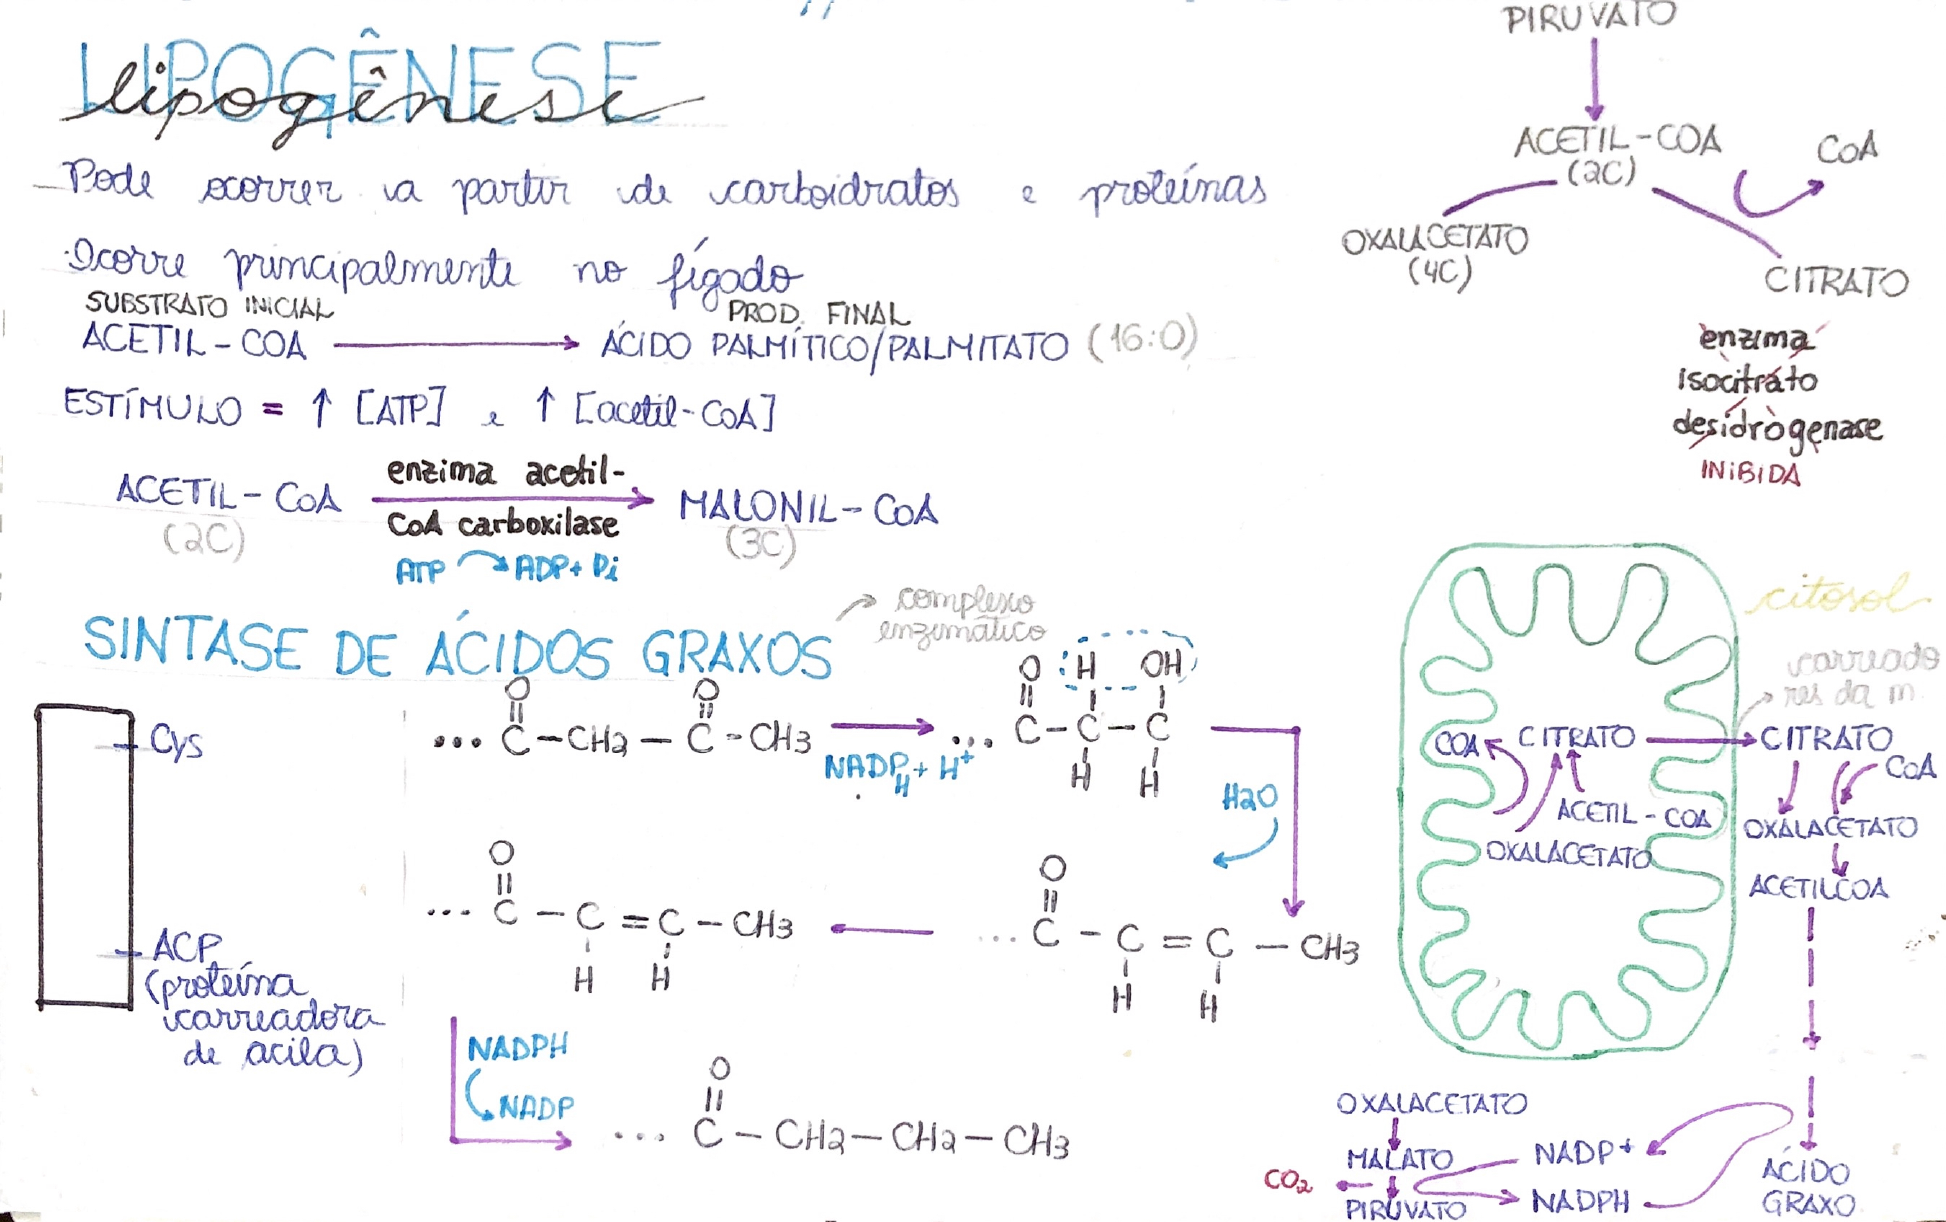 LIPOGÊNESE
lipogênese
Pode ocorrer a partir de carboidratos e proteínas
·Ocorre principalmente no fígado
SUBSTRATO INICIAL PROD. FINAL
ACETIL-COA → ÁCIDO PALMÍTICO/PALMITATO (16:0)
ESTÍMULO = ↑ [ATP] e ↑ [acetil-CoA]
enzima acetil-
ACETIL-CoA → MALONIL-CoA
CoA carboxilase
(2C) (3C)
ATP → ADP+Pi
PIRUVATO
ACETIL-COA
(2C)
CoA
OXALACETATO
(4C)
CITRATO
enzima
isocitrato
desidrogenase
INIBIDA
SINTASE DE ÁCIDOS GRAXOS
complexo
enzimático
Cys
ACP
(proteína
carreadora
de acila)
O O
... C-CH2-C-CH3
NADPH + H+
O H OH
... C-C-C
H H
H2O
O
... C-C=C-CH3
H H
O
... C-C=C-CH3
H H
NADPH
NADP
O
... C-CH2-CH2-CH3
citosol
carreado
res da m
COA CITRATO → CITRATO
CoA
ACETIL-COA
OXALACETATO
OXALACETATO
ACETILCOA
OXALACETATO
MALATO
CO2
PIRUVATO
NADP+
NADPH
ÁCIDO
GRAXO